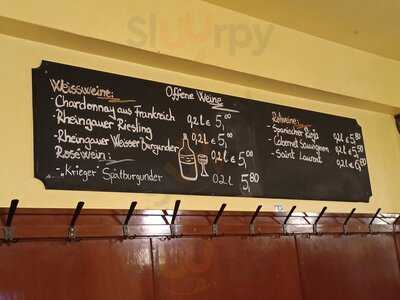 Slurrpy
Offene Weine
Weissweine:
-Chardonnay aus Frankreich 0,2 l € 5,00
-Rheingauer Riesling 0,2 l € 5,00
-Rheingauer Weisser Burgunder 0,2 l € 5,00
Roséwein:
-Krieger Spätburgunder 0,2 l 5,80
Rotweine:
-Spanischer Rioja 0,2 l € 5,00
-Cabernet Sauvignon 0,2 l € 5,50
-Saint Laurent 0,2 l € 5,80